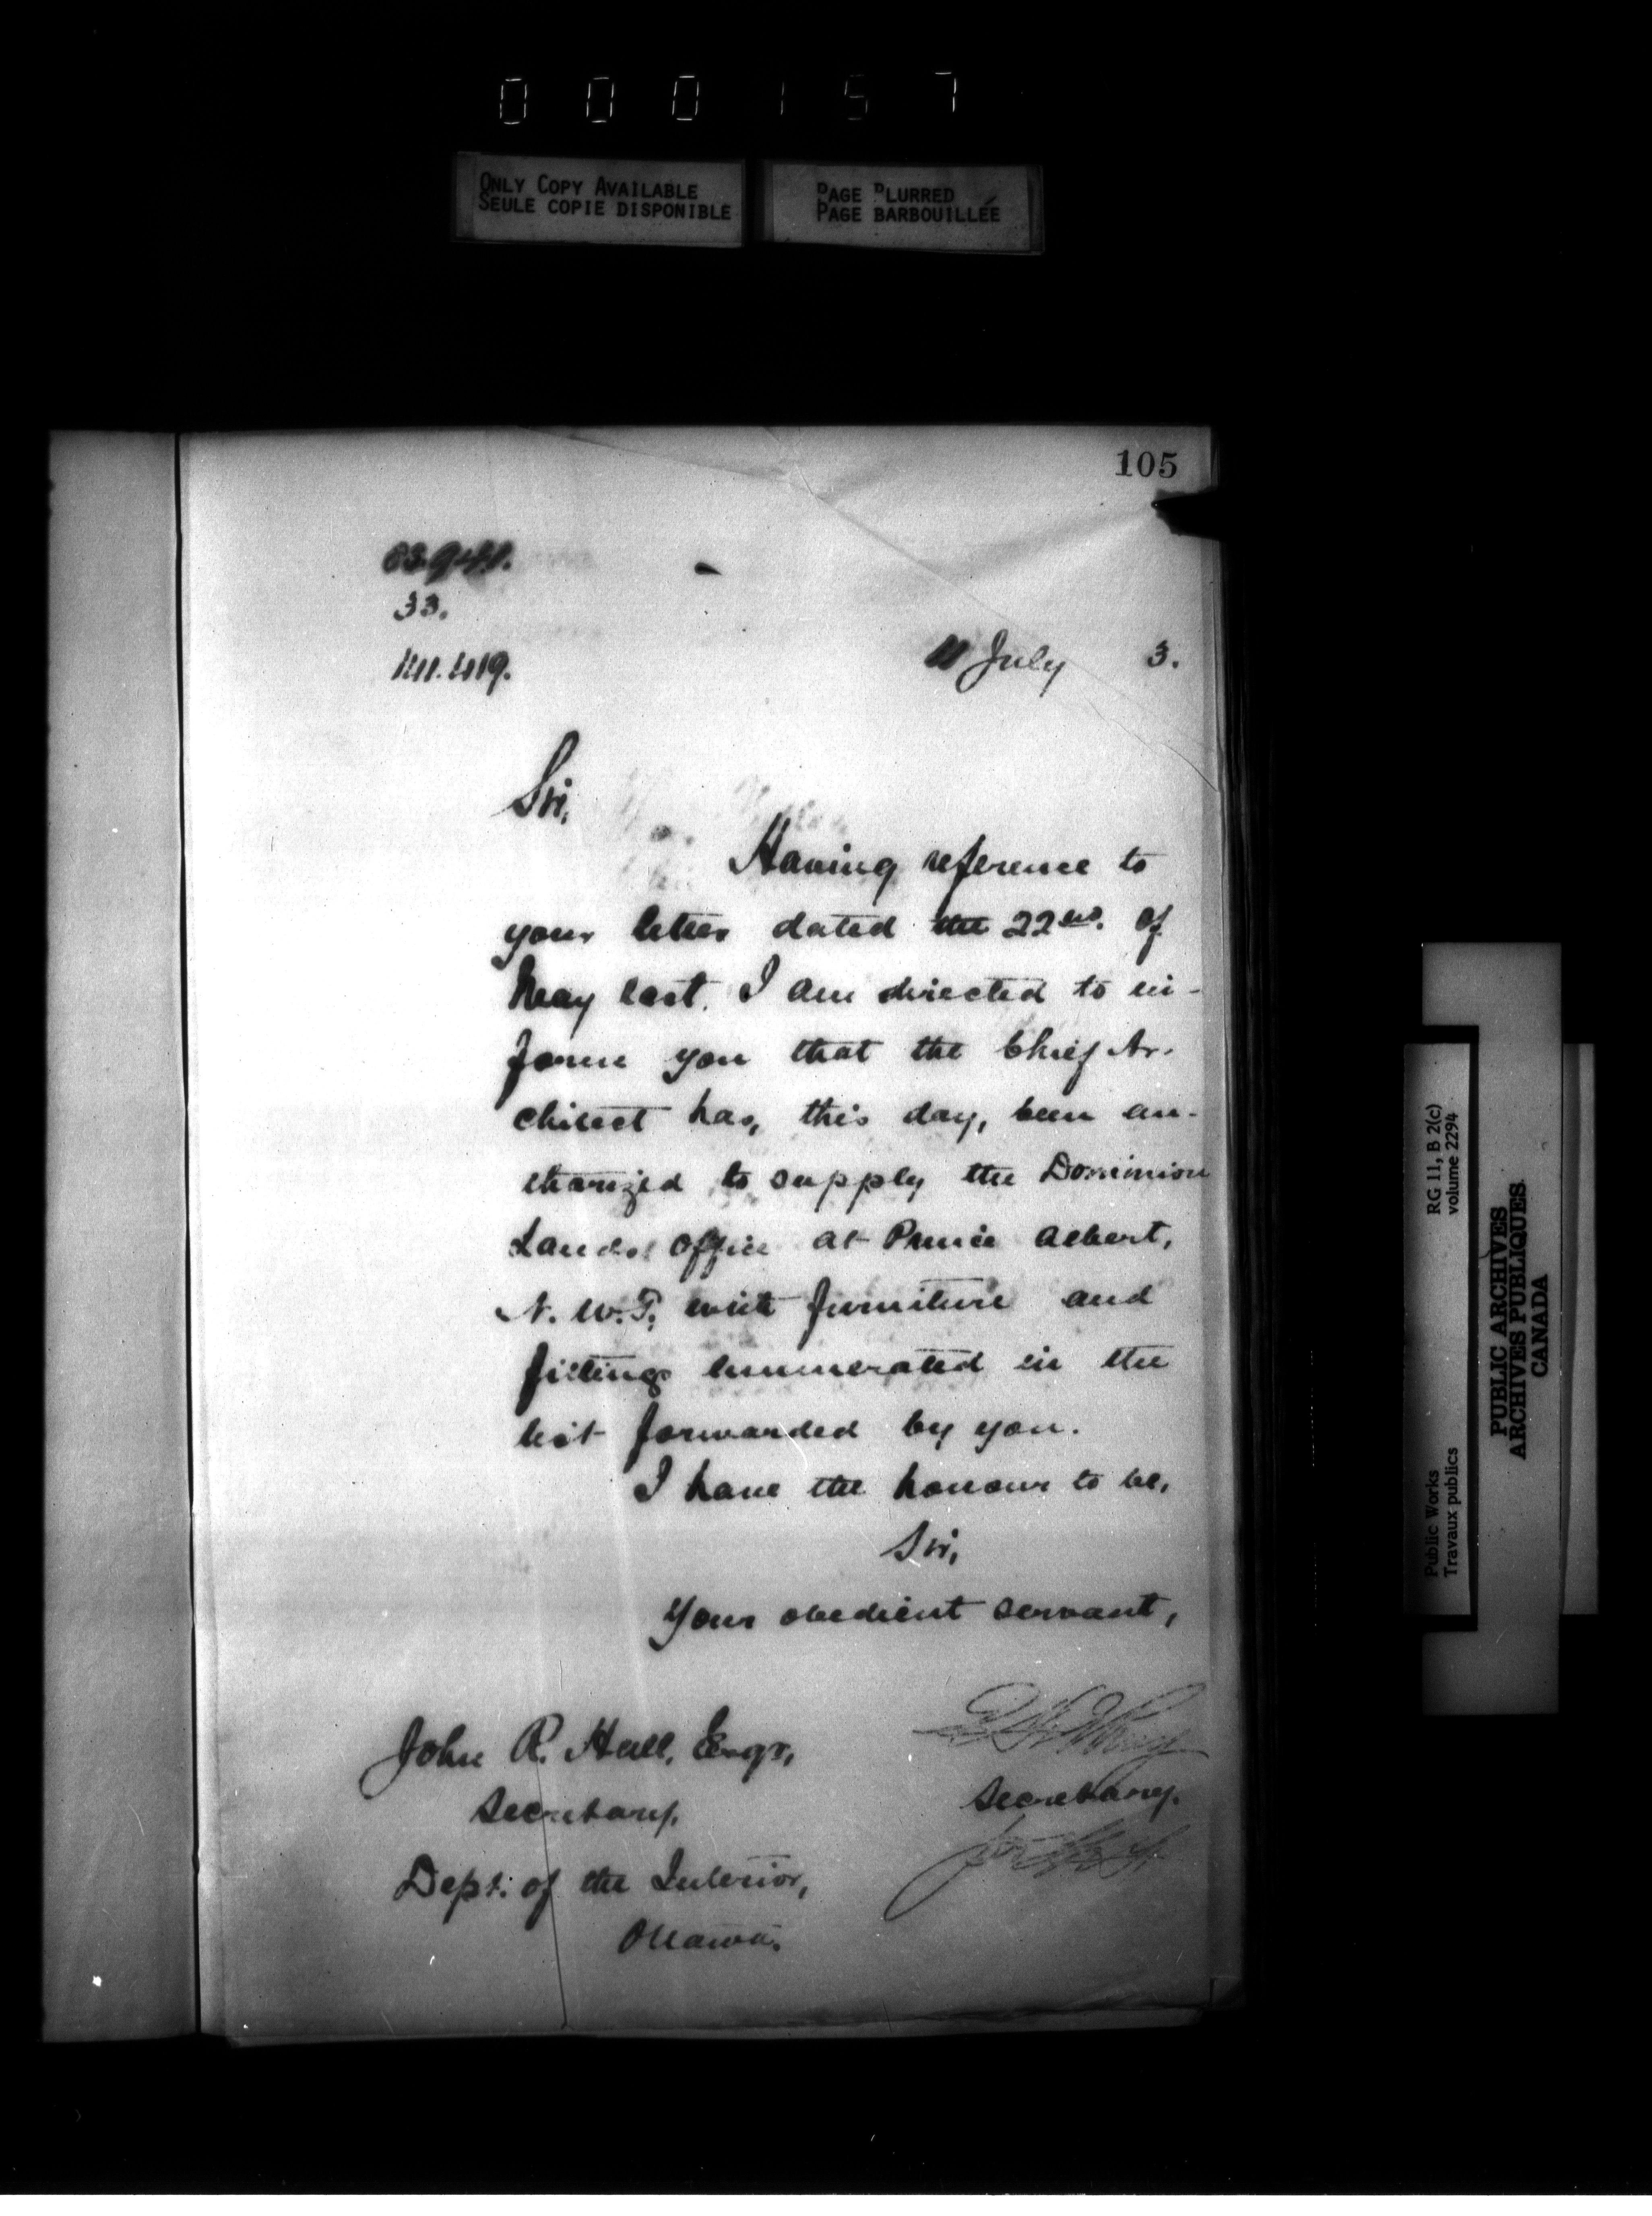 000157
ONLY COPY AVAILABLE
SEULE COPIE DISPONIBLE
PAGE BLURRED
PAGE BARBOUILLÉE
105
33.
11 July 3.
Sir,
Having reference to
your letter dated the 22nd. of
May last. I am directed to in-
form you that the Chief Ar-
chitect has, this day, been au-
thorized to supply the Dominion
Lands Office at Prince Albert,
N. W. T. with furniture and
fittings enumerated in the
list forwarded by you.
I have the honour to be,
Sir,
Your obedient servant,
John R. Hall, Esqr,
Secretary.
Secretary.
Dept. of the Interior,
Ottawa.
Public Works
Travaux publics
RG 11, B 2(c)
volume 2294
PUBLIC ARCHIVES
ARCHIVES PUBLIQUES
CANADA